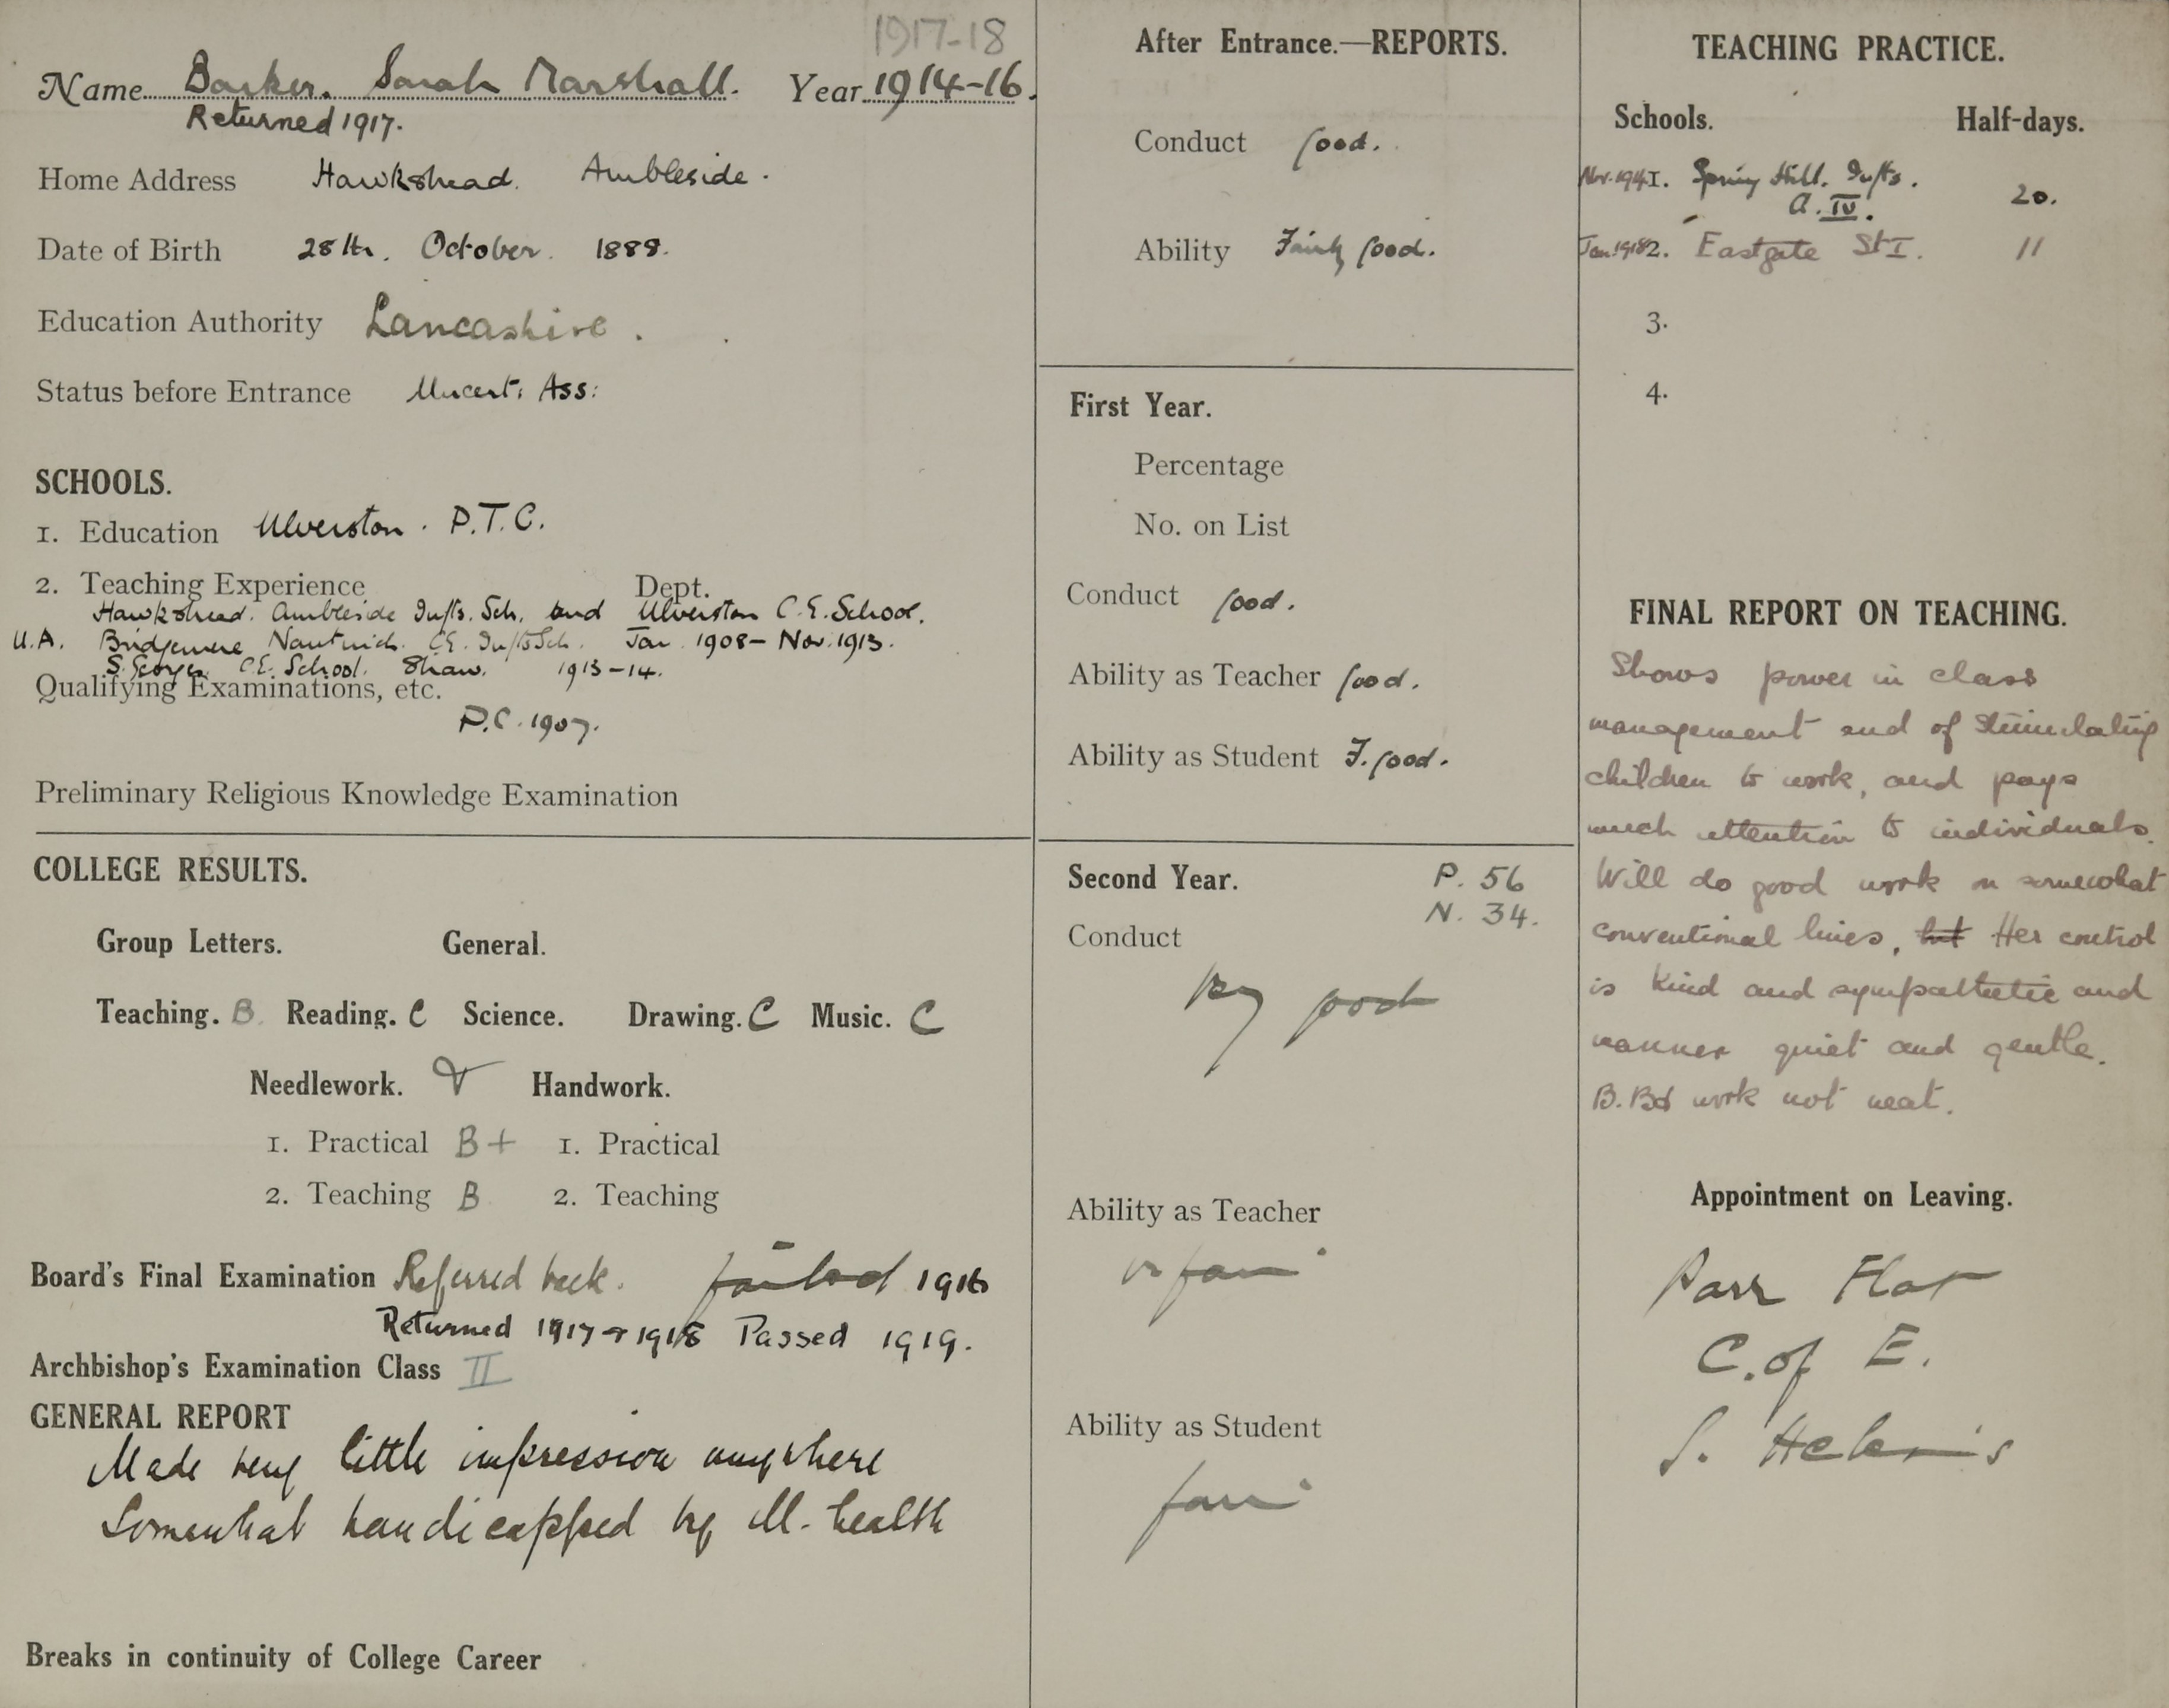 1917-18
Name Barker. Sarah Marshall. Year 1914-16.
Returned 1917.
Home Address Hawkshead. Ambleside.
Date of Birth 28th. October. 1888.
Education Authority Lancashire.
Status before Entrance Uncert: Ass:
SCHOOLS.
1. Education Ulverston. P.T.C.
2. Teaching Experience Dept.
Hawkshead. Ambleside Infts. Sch. and Ulverston C.E. School.
U.A. Bridgemere Nantwich. C.E. Infts Sch. Jan. 1908- Nov. 1913.
S. Georges C.E. School. Shaw. 1913-14.
Qualifying Examinations, etc.
P.C. 1907.
Preliminary Religious Knowledge Examination
COLLEGE RESULTS.
Group Letters. General.
Teaching. B. Reading. C Science. Drawing. C Music. C
Needlework. Handwork.
1. Practical B+ 1. Practical
2. Teaching B 2. Teaching
Board's Final Examination Referred back. failed 1916
Returned 1917 & 1918 Passed 1919.
Archbishop's Examination Class II
GENERAL REPORT
Made very little impression anywhere
Somewhat handicapped by ill-health
Breaks in continuity of College Career
After Entrance.—REPORTS.
Conduct Good.
Ability Fairly Good.
First Year.
Percentage
No. on List
Conduct Good.
Ability as Teacher Good.
Ability as Student F. Good.
Second Year. P. 56
N. 34.
Conduct
Very good
Ability as Teacher
v fair
Ability as Student
fair
TEACHING PRACTICE.
Schools. Half-days.
Nov. 1914 1. Spring Hill. Infts. 20.
A. IV.
Jan 1918 2. Eastgate St I. 11
3.
4.
FINAL REPORT ON TEACHING.
Shows power in class
management and of stimulating
children to work, and pays
much attention to individuals.
Will do good work on somewhat
conventional lines, but Her control
is kind and sympathetic and
manner quiet and gentle.
B. Bd work not neat.
Appointment on Leaving.
Parr Flat
C. of E.
S. Helen's